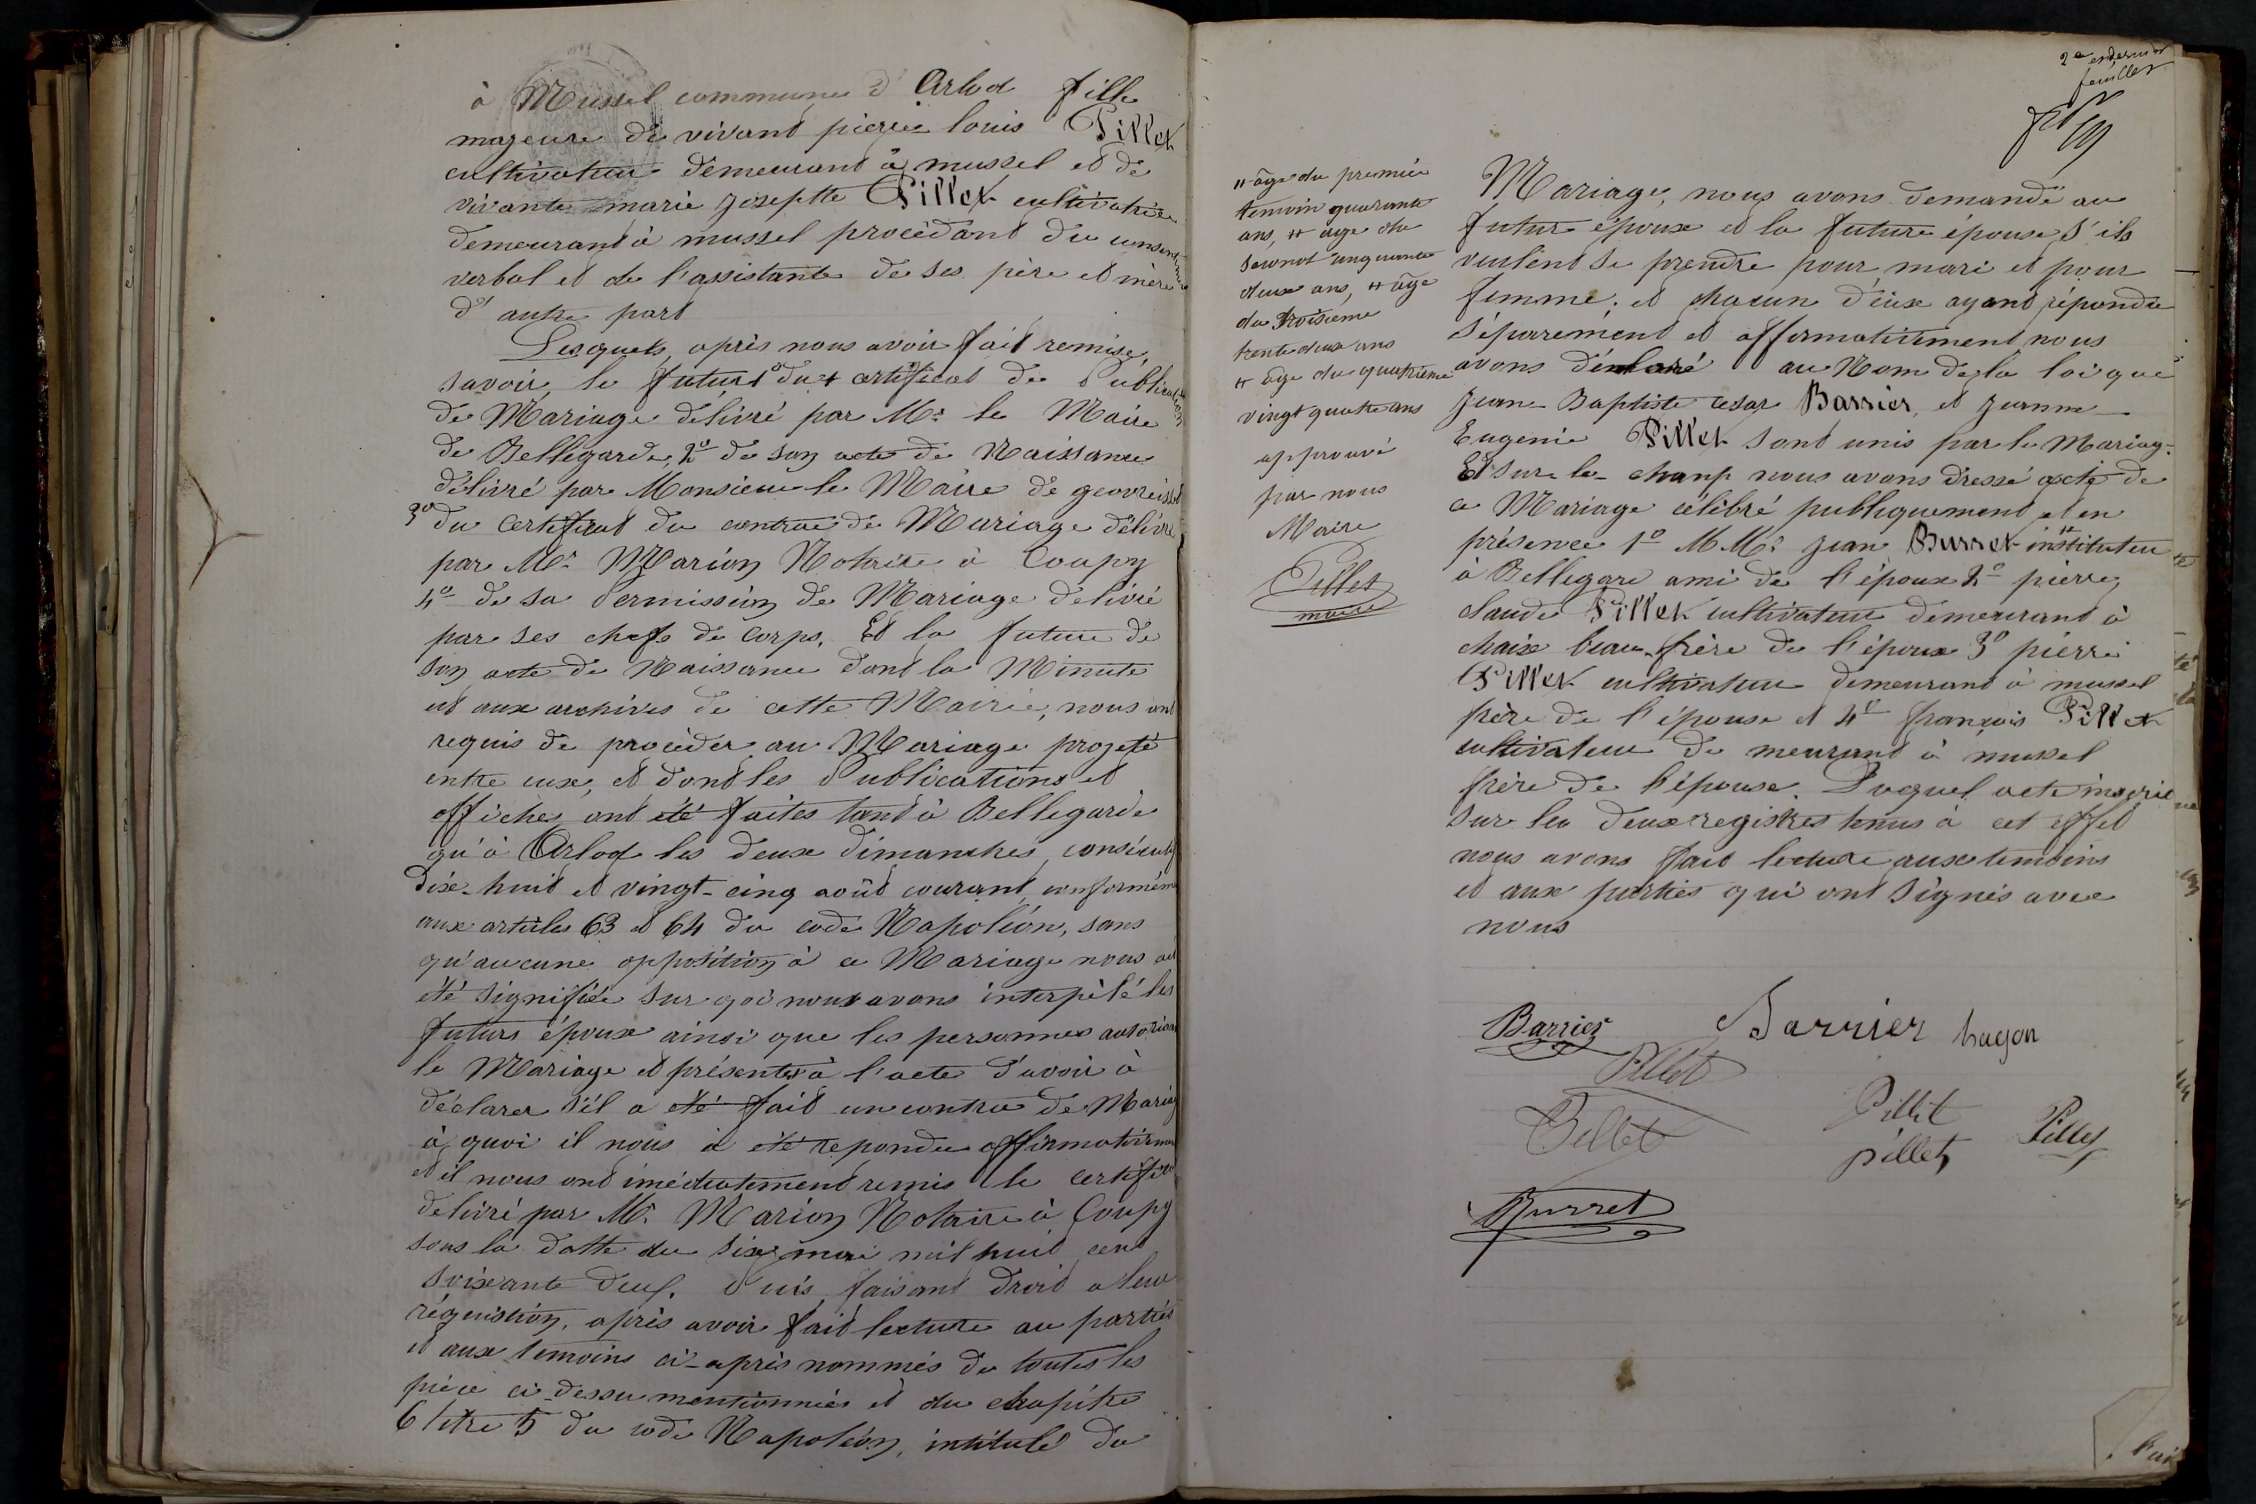 à Mussel commune d'Arlod fille
majeure de vivant pierre louis Pillet
cultivateur demeurant à mussel et de
vivante marie josephte Pillet cultivatrice
demeurant à mussel procèdant du consentement
verbal et de l'assistante de ses père et mère
d'autre part
Lesquels, après nous avoir fait remise,
savoir, le futur 1º du certificat de Publication
de Mariage délivré par Mr le Maire
de Bellegarde, 2º de son acte de Naissance
délivré par Monsieur le Maire de geovreisset
3º du Certificat du contrat de Mariage délivré
par Me Marion Notaire à Coupy
4º de sa Permission de Mariage delivré
par ses chefs de Corps. Et la future de
son acte de Naissance dont la Minute
est aux archives de cette Mairie, nous ont
requis de procèder au Mariage projeté
entre eux, et dont les Publications et
affiches ont été faites tant à Bellegarde
qu'à Arlod les deux dimanches, consécutifs
Dix-huit et vingt-cinq août courant, conformément
aux articles 63 et 64 du code Napoléon, sans
qu'aucune opposition à ce Mariage nous ait
été signifiée sur qoi nous avons interpèlé les
futurs époux ainsi que les personnes autorisant
le Mariage et présentes à l'acte d'avoir à
déclarer s'il a été fait un contra de Mariage
à quoi il nous a été repondu affirmativement
et il nous ont imédiatement remis le certificat
delivré par Me Marion Notaire à Coupy
sous la datte du six mai mil huit cent
soixante deux. Puis, faisant droit a leur
réquisition, après avoir fait lecture au parties
et aux temoins ci-après nommés de toutes les
pièce ci-dessu mentionnées et du chapitre
6 titre 5 du code Napoléon, intitulé du
2e et dernier
feuillet
Mariage, nous avons demandé au
futur époux et la future épouse s'ils
veulent se prendre pour mari et pour
femme; et chacun d'eux ayant répondu
séparement et affirmativement nous
avons déclaré au Nom de la loi que
Jean Baptiste cesar Barrier, et jeanne
Eugenie Pillet sont unis par le Mariage.
Et sur le-champ nous avons dressé acte de
ce Mariage célébré publiquement et en
présence 1º MMr jean Burret instituteur
à Bellegare ami de l'époux 2º pierre
claude Pillet cultivateur demeurant à
chaix beau-frère de l'époux 3º pierre
Pillet cultivateur demeurant à mussel
frère de l'épouse et 4º françois Pillet
cultivateur de meurant à mussel
frère de l'épouse. Duquel acte inscrie
sur les deux registres tenus à cet effet
nous avons fait lecture aux temoins
et aux parties qui ont signés avec
nous
" âge du premier
temoin quarante
ans, " âge du
second cinquante
deux ans, " âge
du troisieme
trente deux ans
" âge du quatrième
vingt quatre ans
approuvé
par nous
Maire
Pillet
maire
Barrier Barrier hugon
Pillet
Pillet Pillit Pillet
pillet
Burret